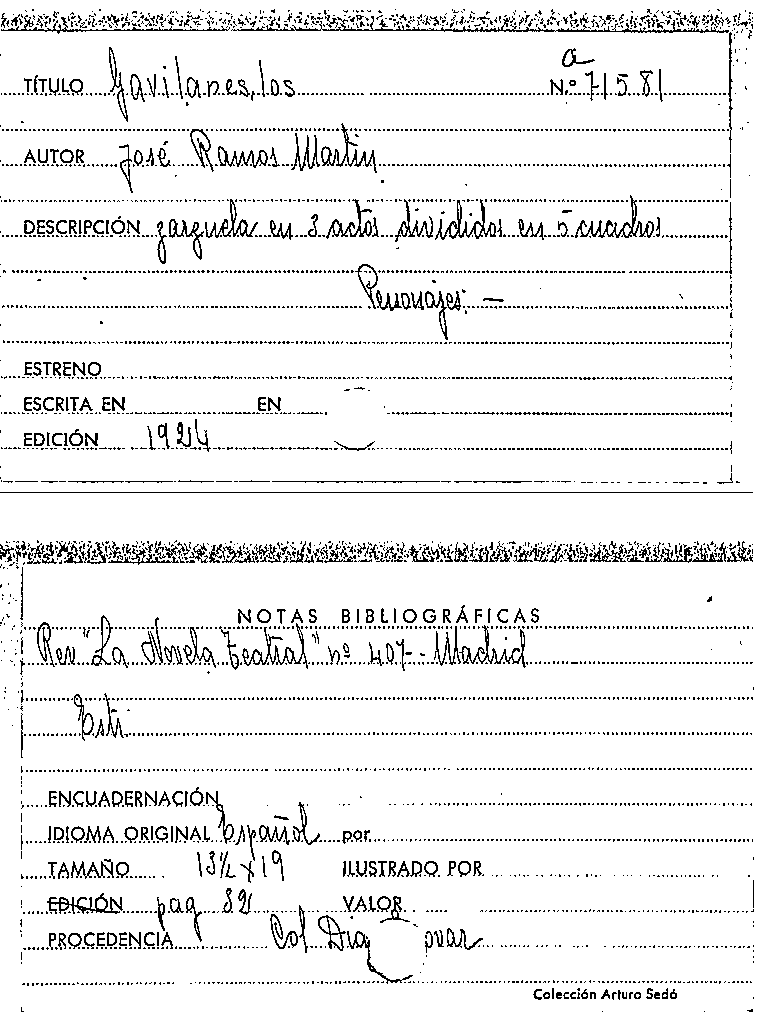 a
TÍTULO Gavilanes, los N.º 71581
AUTOR José Ramos Martin
DESCRIPCIÓN zarzuela en 3 actos divididos en 5 cuadros
Personajes: —
ESTRENO
ESCRITA EN EN
EDICIÓN 1924
NOTAS BIBLIOGRÁFICAS
Rev "La Novela Teatral" nº 407-- Madrid
ENCUADERNACIÓN
IDIOMA ORIGINAL Español por
TAMAÑO 13½ x 19 ILUSTRADO POR
EDICIÓN pag 32 VALOR
PROCEDENCIA Col Dia ovar
Colección Arturo Sedó